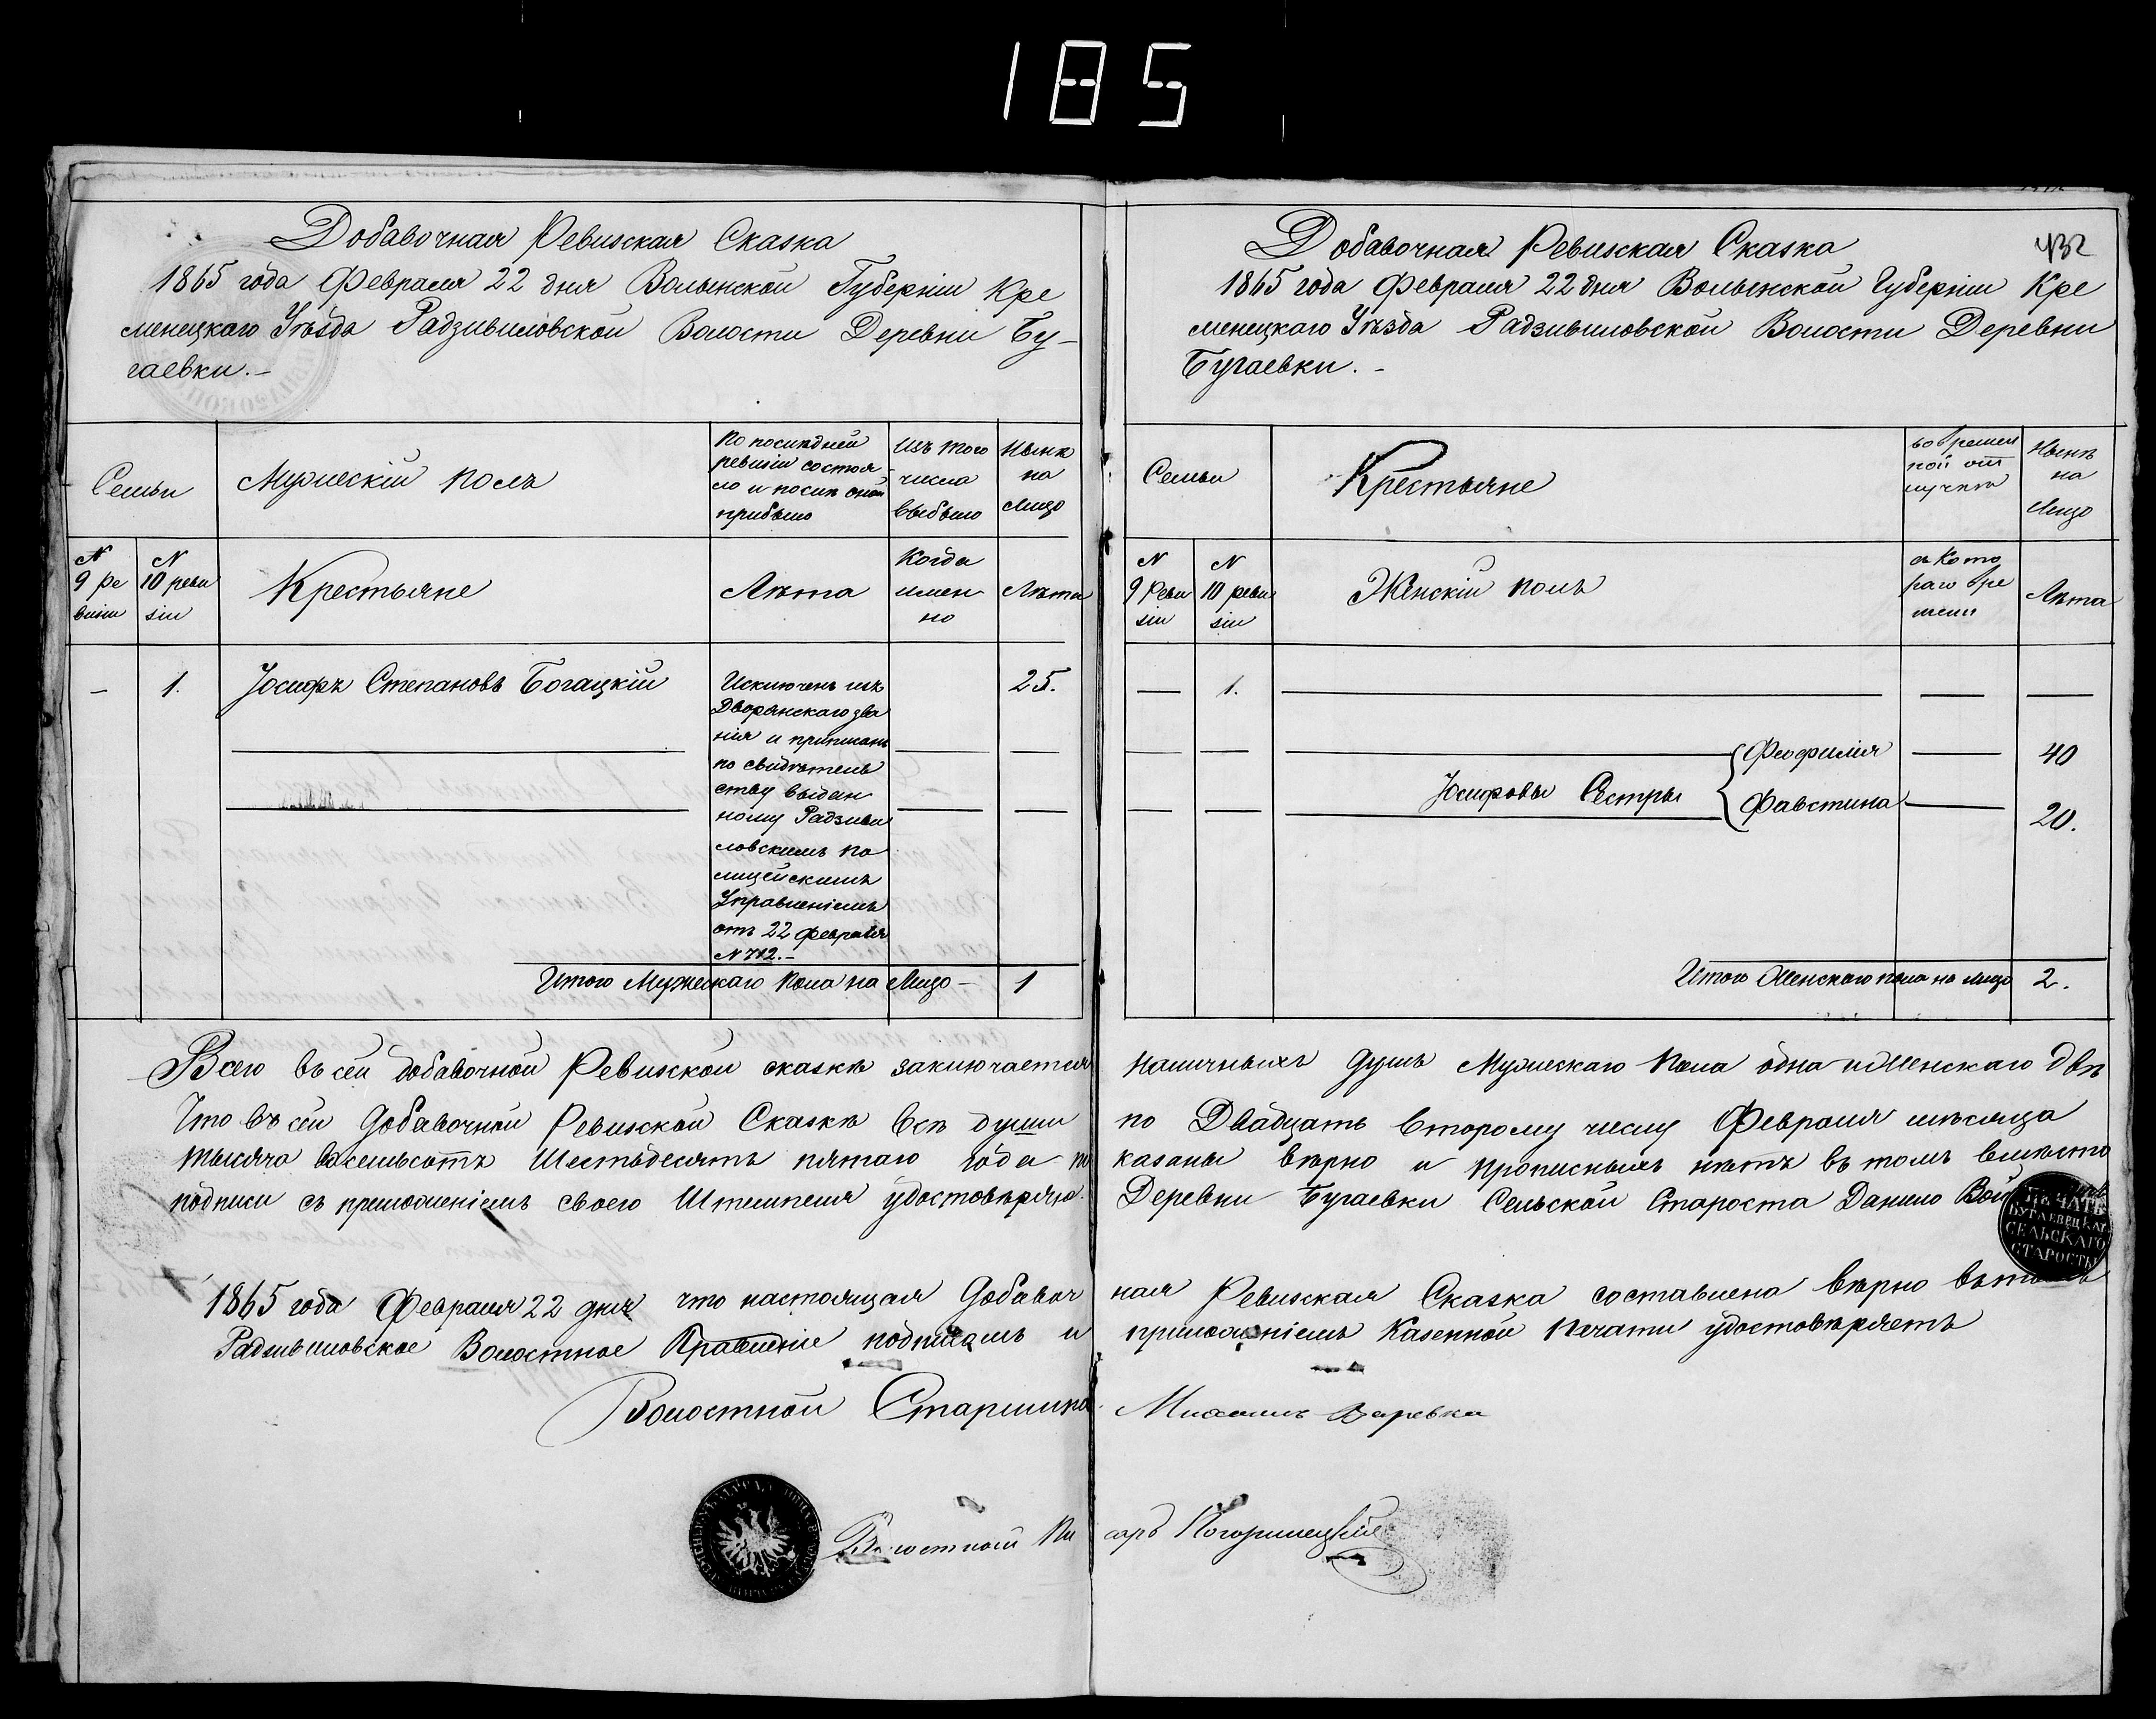 185
Добавочная Ревизская Сказка
1865 года Февраля 22 дня Волынской Губерніи Кре
менецкаго Уѣзда Радзивиловской Волости Деревни Бу-
гаевки.-
Семьи
Мужескій полъ
По послѣдней
ревизіи состоя
ло и послѣ оной
прибыло
Изъ того
числа
выбыло
Нынѣ
на
лицо
N
9 ре
визіи
N
10 реви
зіи
Крестьяне
Лѣта
Когда
имен
но
Лѣта
-
1.
Іосифъ Степановъ Богацкій
Исключенъ изъ
Дворянскаго зва
нія и приписанъ
по свидѣтель
ству выдан
ному Радзиви
ловскимъ по
лицейскимъ
Управленіемъ
отъ 22 февраля
N 712.-
25.
Итого Мужескаго пола на Лицо -
1
Добавочная Ревизская Сказка
432
1865 года Февраля 22 дня Волынской Губерніи Кре
менецкаго Уѣзда Радзивиловской Волости Деревни
Бугаевки. -
Семьи
Крестьяне
во времен
ной от
лучкѣ
Нынѣ
на
Лицо
N
9 Реви
зіи
N
10 реви
зіи
Женскій полъ
съ кото
раго вре
мени
Лѣта
1.
Іосифовы Сестры
Феофилія
40
Фавстина
20.
Итого Женскаго пола на лицо
2.
Всего въ сей добавочной Ревизской сказкѣ заключается наличныхъ душъ Мужескаго пола одна и Женскаго двѣ
Что въ сей Добавочной Ревизской Сказкѣ всѣ души по Двадцать второму числу Февраля мѣсяца
тысяча восемьсотъ Шестьдесятъ пятаго года по казаны вѣрно и прописныхъ нѣтъ въ томъ вмѣсто
подписи съ приложеніемъ своего Штемпеля удостовѣряю. Деревни Бугаевки Сельской Староста Данило
ПЕЧАТЬ
БУГАЕВЕЦКАГ
СЕЛЬСКАГО
СТАРОСТЫ
1865 года Февраля 22 дня что настоящая Добавоч ная Ревизская Сказка составлена вѣрно въ томъ
Радзивиловское Волостное Правленіе подписомъ и приложеніемъ Казенной Печати удостовѣряетъ
Волостной Старшина Михаилъ
Волостной Пи саръ